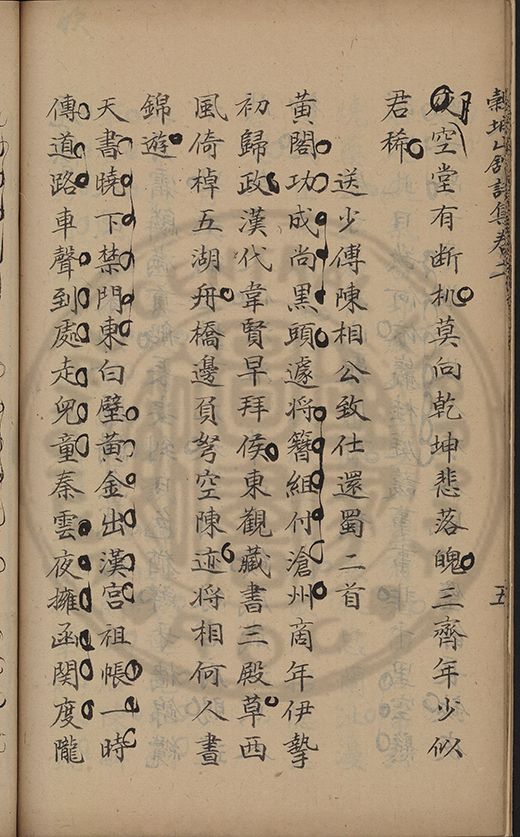 穀城山舘詩集卷二
五
月空堂有断机莫向乾坤悲落魄三齊年少似
君稀
送少傅陳相公致仕還蜀二首
黃閣功成尚黑頭遽將簪組付滄州商年伊摯
初歸政漢代韋賢早拜侯東觀藏書三殿草西
風倚棹五湖舟橋邊負弩空陳迹將相何人晝
錦遊
天書曉下禁門東白璧黃金出漢宮祖帳一時
傳道路車聲到處走兒童秦雲夜擁函関度隴